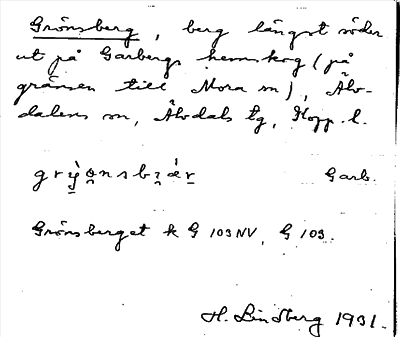 Grönsberg, berg längst söder
ut på Garbergs hemskog (på
gränsen till Mora sn), Älv-
dalens sn, Älvdals tg, Kopp. l.
Garb.
Grönsberget k G 103 NV, G 103.
H. Lindberg 1931.